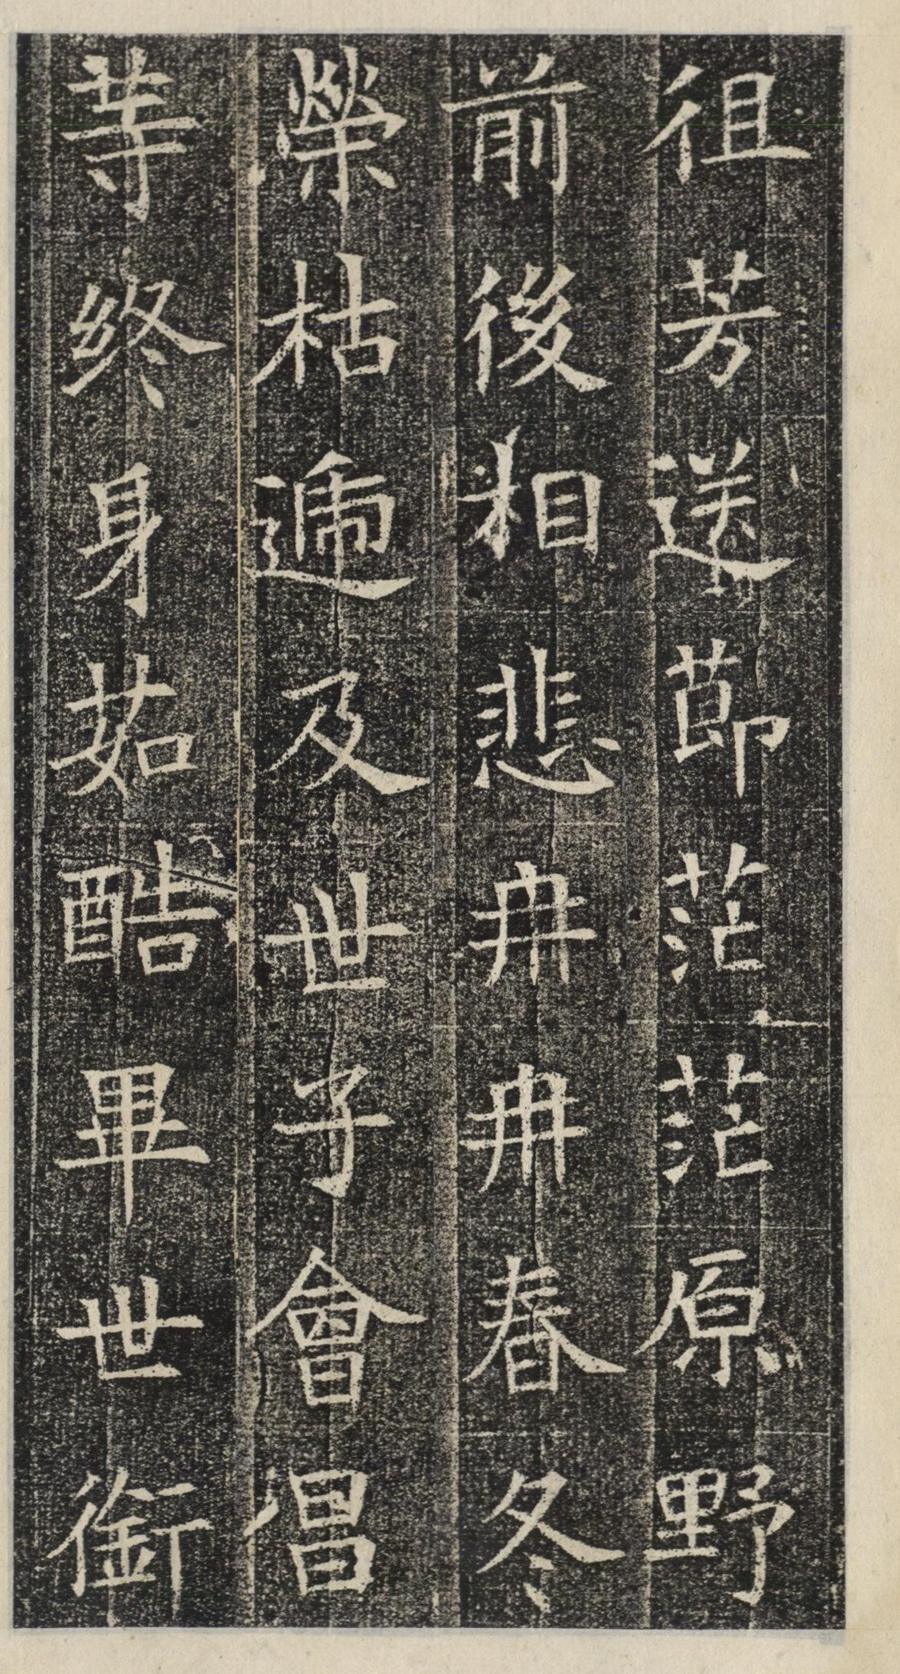 徂芳送節茫茫原野
前後相悲冉冉春冬
榮枯遞及世子會昌
等終身茹酷畢世銜